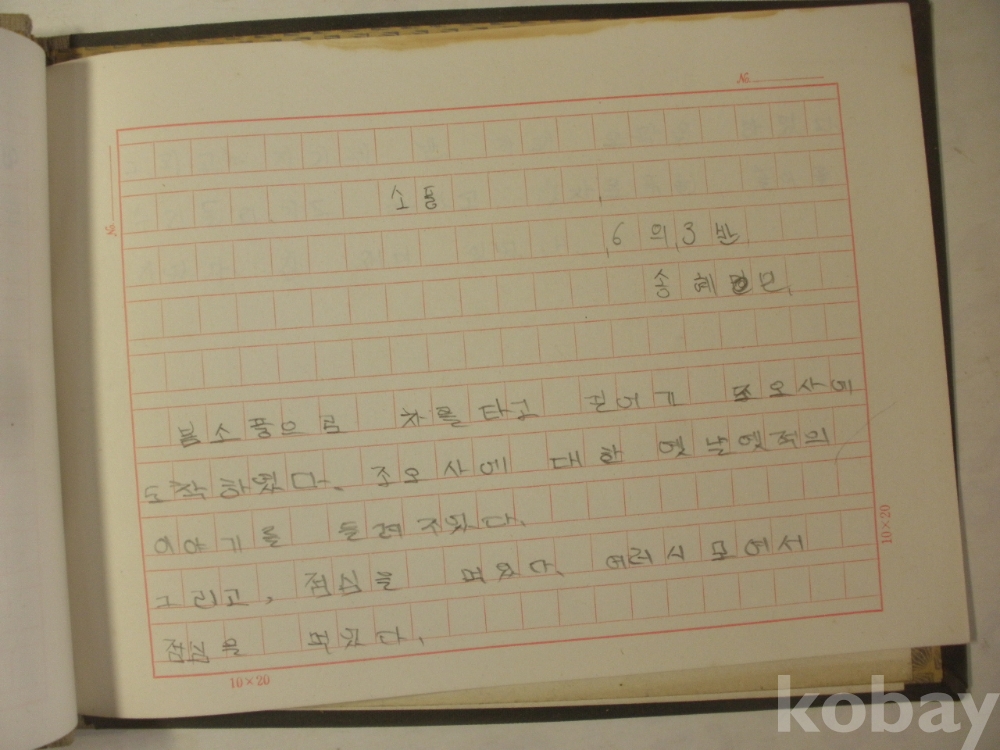 №
№
소풍
6의3반
송혜
봄소풍으로 차를 타고 오사에
도착하였다. 조오사에 대한 옛날옛적의
이야기를 들려주었다.
그리고, 점심을 먹었다. 여러시 모여서
점심을 먹었다.
10×20
10×20
kobay